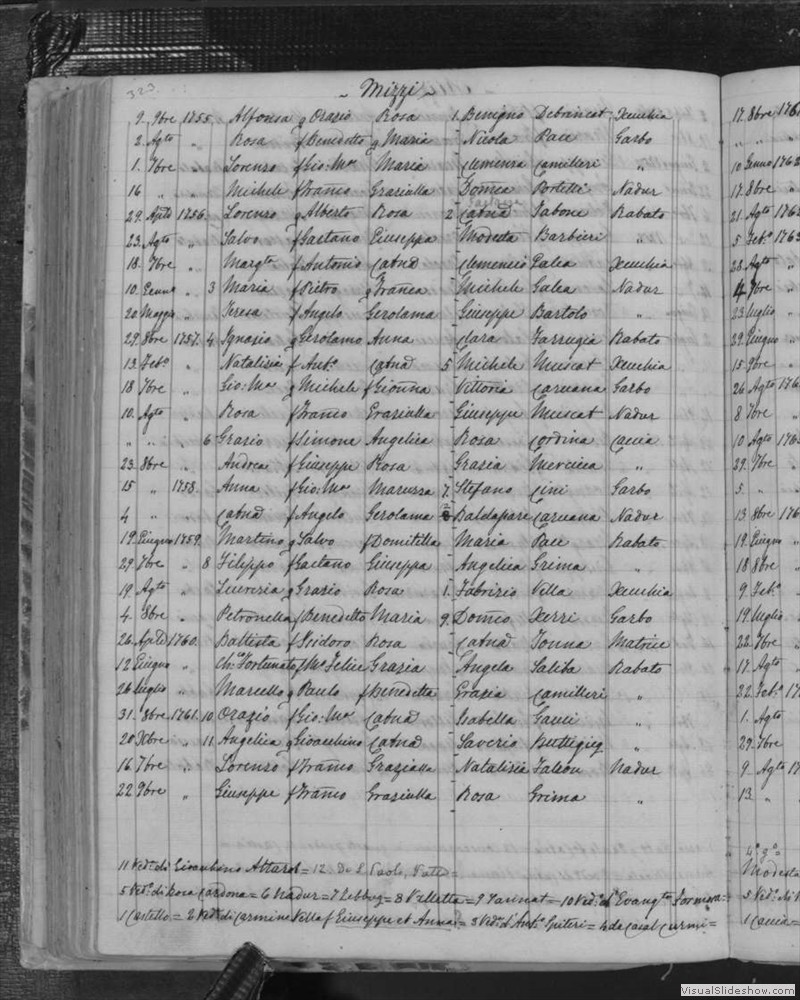 323.
Mizzi
9. 9bre 1755. Alfonsa g Orazio Rosa 1. Benigno Debrincat Xeuchia 17. 8bre
2. Agto " Rosa f Benedetto g Maria Nicola Pace Garbo " "
1. 7bre " Lorenzo f Gio: Ma Maria Clemenza Camilleri " 10 Genno 1762
16 " " Michele f Franco Graziulla Domca Portelli Nadur 17. 8bre "
29. Aple 1756. Lorenzo g Alberto Rosa 2 Catna Tabone Rabato 21 Agto
23. Agto " Salvo f Gaetano Giuseppa Modesta Barbieri " 5 Feb. 1763
18. 7bre " Margta f Antonio Catna Clemenzio Galea Xeuchia 28. Agto
10. Genno " 3 Maria f Pietro g Franca Michele Galea Nadur 4 7bre
20 Maggo " Teresa f Angelo Gerolama Giuseppe Bartolo " 23 luglio
29. 9bre 1757. 4 Ignazio g Gerolamo Anna Clara Farrugia Rabato 29. Giugno
13. Feb. " Natalizia f Ant. Catna 5 Michele Muscat Xeuchia 15 9bre
18 7bre " Gio: Ma g Michele f Gionna Vittoria Caruana Garbo 26. Agto
10. Agto " Rosa f Franco Graziulla Giuseppe Muscat Nadur 8 7bre
" " " 6 Grazio f Simone Angelica Rosa Cordina Caccia 10 Agto
23. 8bre " Andrea f Giuseppe Rosa Grazia Mercieca " 29. 7bre
15 " 1758. Anna f Gio: Ma Maruzza 7. Stefano Cini Garbo 5. "
4 " " Catna f Angelo Gerolama Baldapare Caruana Nadur 13 8bre
19. Giugno 1759. Martino g Salvo f Domitilla Maria Pace Rabato 19. Giugno
29. 7bre " 8 Filippo f Gaetano Giuseppa Angelica Grima " 18 8bre
19. Agto " Lucrezia g Grazio Rosa 1. Fabrizio Vella Xeuchia 9. Feb.
4. 8bre " Petronella f Benedetto Maria 9. Domco Xerri Garbo 19. luglio
26. Aple 1760. Battista f Isidoro Rosa Catna Tonna Matrice 22. 7bre
12. Giugno " Fortunato f Ma Felice Grazia Angela Saliba Rabato 17. Agto
26 luglio " Marcello g Paulo f Benedetta Grazia Camilleri " 22. Feb.
31. 8bre 1761. 10 Orazio f Gio: Ma Catna Isabella Gauci " 1. Agto
20 Xbre " 11. Angelica g Gioacchino Catna Saverio Buttigieg " 29. 7bre
16 7bre " Lorenzo f Franco Graziulla Natalizia Falson Nadur 9. Agto
22 9bre " Giuseppe f Franco Graziulla Rosa Grima " 13. "
11 Veda di Gioachino Attard = 12. Di S. Paolo,
Modesta
5 Veda di Rosa Cardona = 6 Nadur = 7 Lebbug = 8 Valletta = 9 = 10 Veda d'Evangta Formosa =
5 Veda di
1 Castello = 2 Veda di Carmine Vella f Giuseppe et Anna = 3 Veda d'Anto Spiteri = 4 de Casal Curmi =
1 Caccia =
VisualSlideshow.com